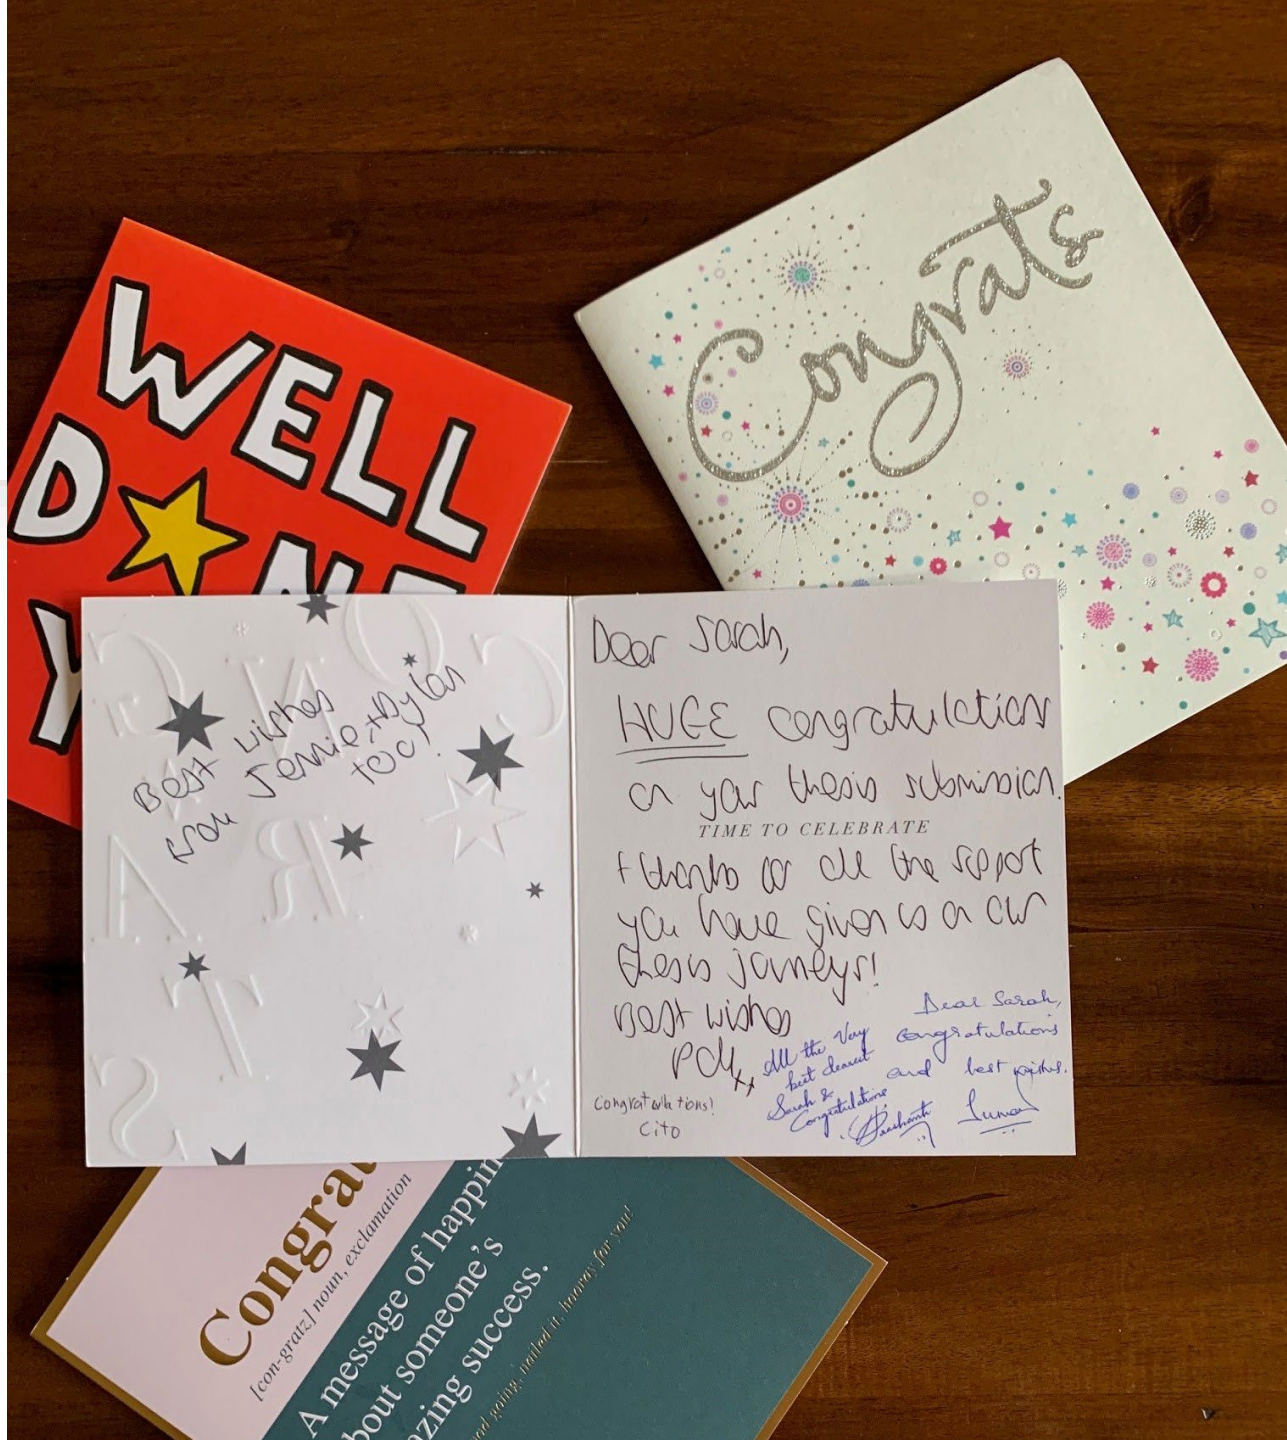 WELL
D★NE
Y
Congrats
Best wishes
from Jennie + Dylan
too!
C O N G
R A T S
Dear Sarah,
HUGE congratulations
on your thesis submission.
TIME TO CELEBRATE
+ thanks for all the support
you have given us on our
thesis journeys!
Best wishes
xx
Congratulations!
Cito
All the Very
best dearest
Sarah &
Congratulations,
Prashanth
Dear Sarah,
Congratulations
and best wishes.
Suman
Congrat
[con-gratz] noun, exclamation
A message of happin
bout someone's
azing success.
od going, nailed it, hooray for you!